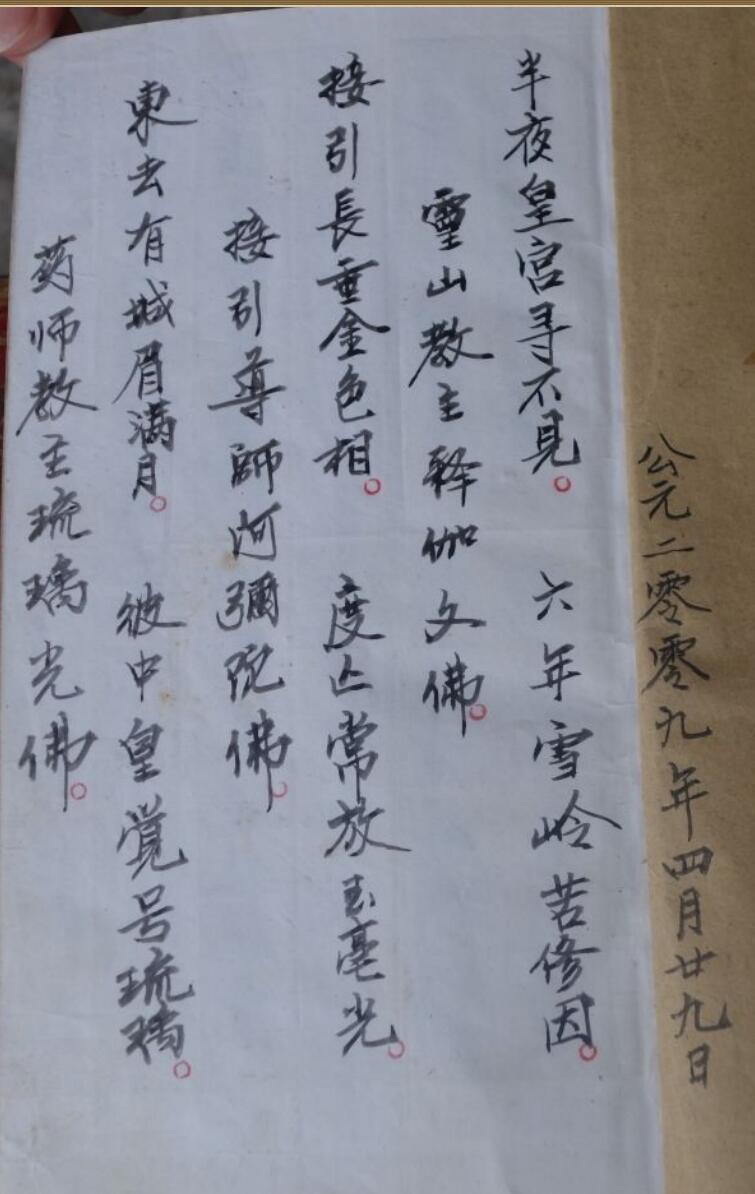 公元二零零九年四月廿九日
半夜皇宫寻不見。 六年雪岭苦修因。
靈山教主释伽文佛。
接引長垂金色相。 度亾常放玉毫光。
接引導師阿彌陀佛。
東去有城眉满月。 彼中皇覺号琉璃。
药师教主琉璃光佛。